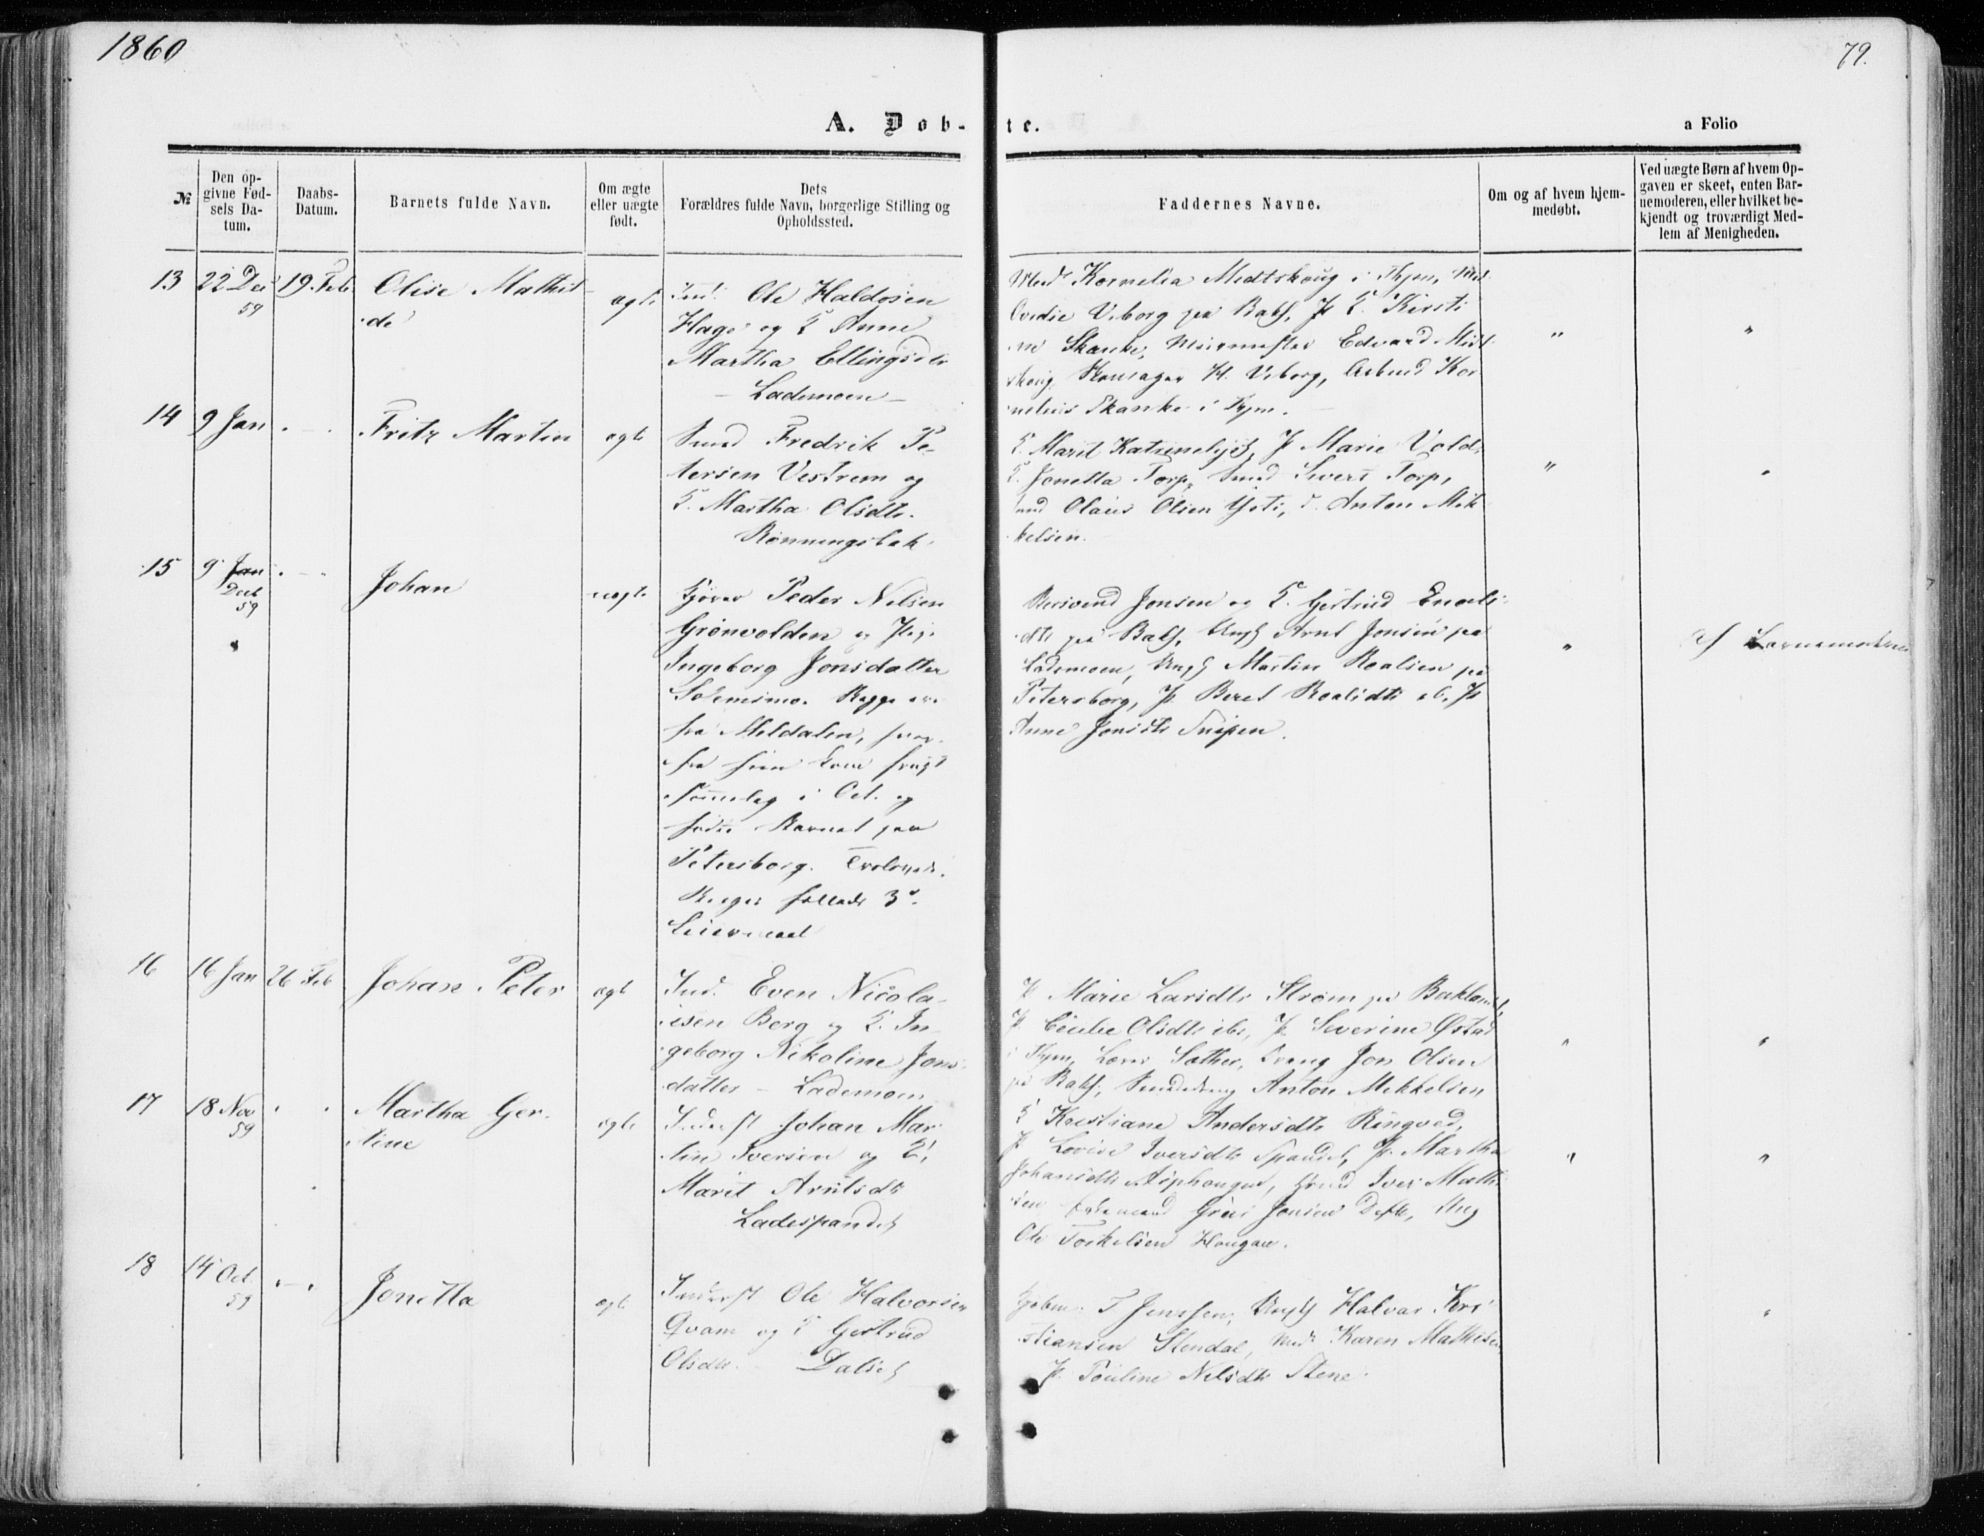 1860
79.
A. Døb-
te.
a Folio
№
Den op-
givne Fød-
sels Da-
tum.
Daabs-
Datum.
Barnets fulde Navn.
Om ægte
eller uægte
født.
Dets
Forældres fulde Navn, borgerlige Stilling og
Opholdssted.
Faddernes Navne.
Om og af hvem hjem-
medøbt.
Ved uægte Børn af hvem Op-
gaven er skeet, enten Bar-
nemoderen, eller hvilket be-
kjendt og troværdigt Med-
lem af Menigheden.
13
22 Dec
59
19. Feb
Olise Mathil
de
ægte
Ind. Ole Haldosen
Hage og K Anne
Martha Ellingsdtr
- Lademoen -
Mad Kornelia Medtskoug i Thjem,
Viborg paa Bakl, P. Kirsti
ne Skanke, Muurmester Edvard Midt
skoug H. Viborg, Kor
nelius Skanke i Thjem.
"
"
14
9 Jan
Fritz Martin
ægte
Smed Fredrik Pe-
tersen Vestrem og
K. Martha Olsdtr.
Rønningsbak
K. Marit P. Marie Vold,
K. Jonetta Torp, Smed Sivert Torp,
Olaus Olsen Anton Mik
kelsen.
"
"
15
9 Jan
Decb
59
Johan
uægte
Peder Nilsen
Grønvolden og Pige
Ingeborg Jonsdatter
Solemsmo. Begge ere
fra Meldalen, hvor
fra hun kom
i Oct. og
fødte Barnet paa
Petersborg.
3d
Leiermaal
Jonsen og K. Gjertrud
dtr paa Bakl, Ungk Arnt Jonsen paa
Lademoen, Ungk Martin Roalsen paa
Petersborg, P. Beret Roalsdtr ib. P.
Anne Jonsdtr
"
af Barnemoderen
16
16 Jan
26 Feb
Johan Peter
ægte
Ind. Even Nicola-
isen Berg og K. In-
geborg Nikoline Jons-
datter - Lademoen
P. Marie Larsdtr Strøm paa Bakland,
P. Olsdtr ib., P. Severine
i Thjem, Dreng Jon Olsen
paa Bakl, Anton Mikkelsen
"
"
17
18 Nov
59
Martha Ger-
tine
ægte
Inderst Johan Mar
tin Iversen og K.
Marit Arntsdtr
Ladespandet
K Kristiane Andersdtr Ringved,
P Lovise Iversdtr Spandet, P. Martha
Johansdtr Iver Math
sen Jonsen Ung
Ole Torkelsen Haugan.
"
"
18
14 Oct
59
Jonetta
ægte
Inderst Ole Halvorsen
Qvam og K Gjertrud
Olsdtr. Dalset
T Jenssen, Ungk Halvar Kri
stiansen Stendal, Mad Karen Mathisen
P. Pouline Nilsdtr Stene.
"